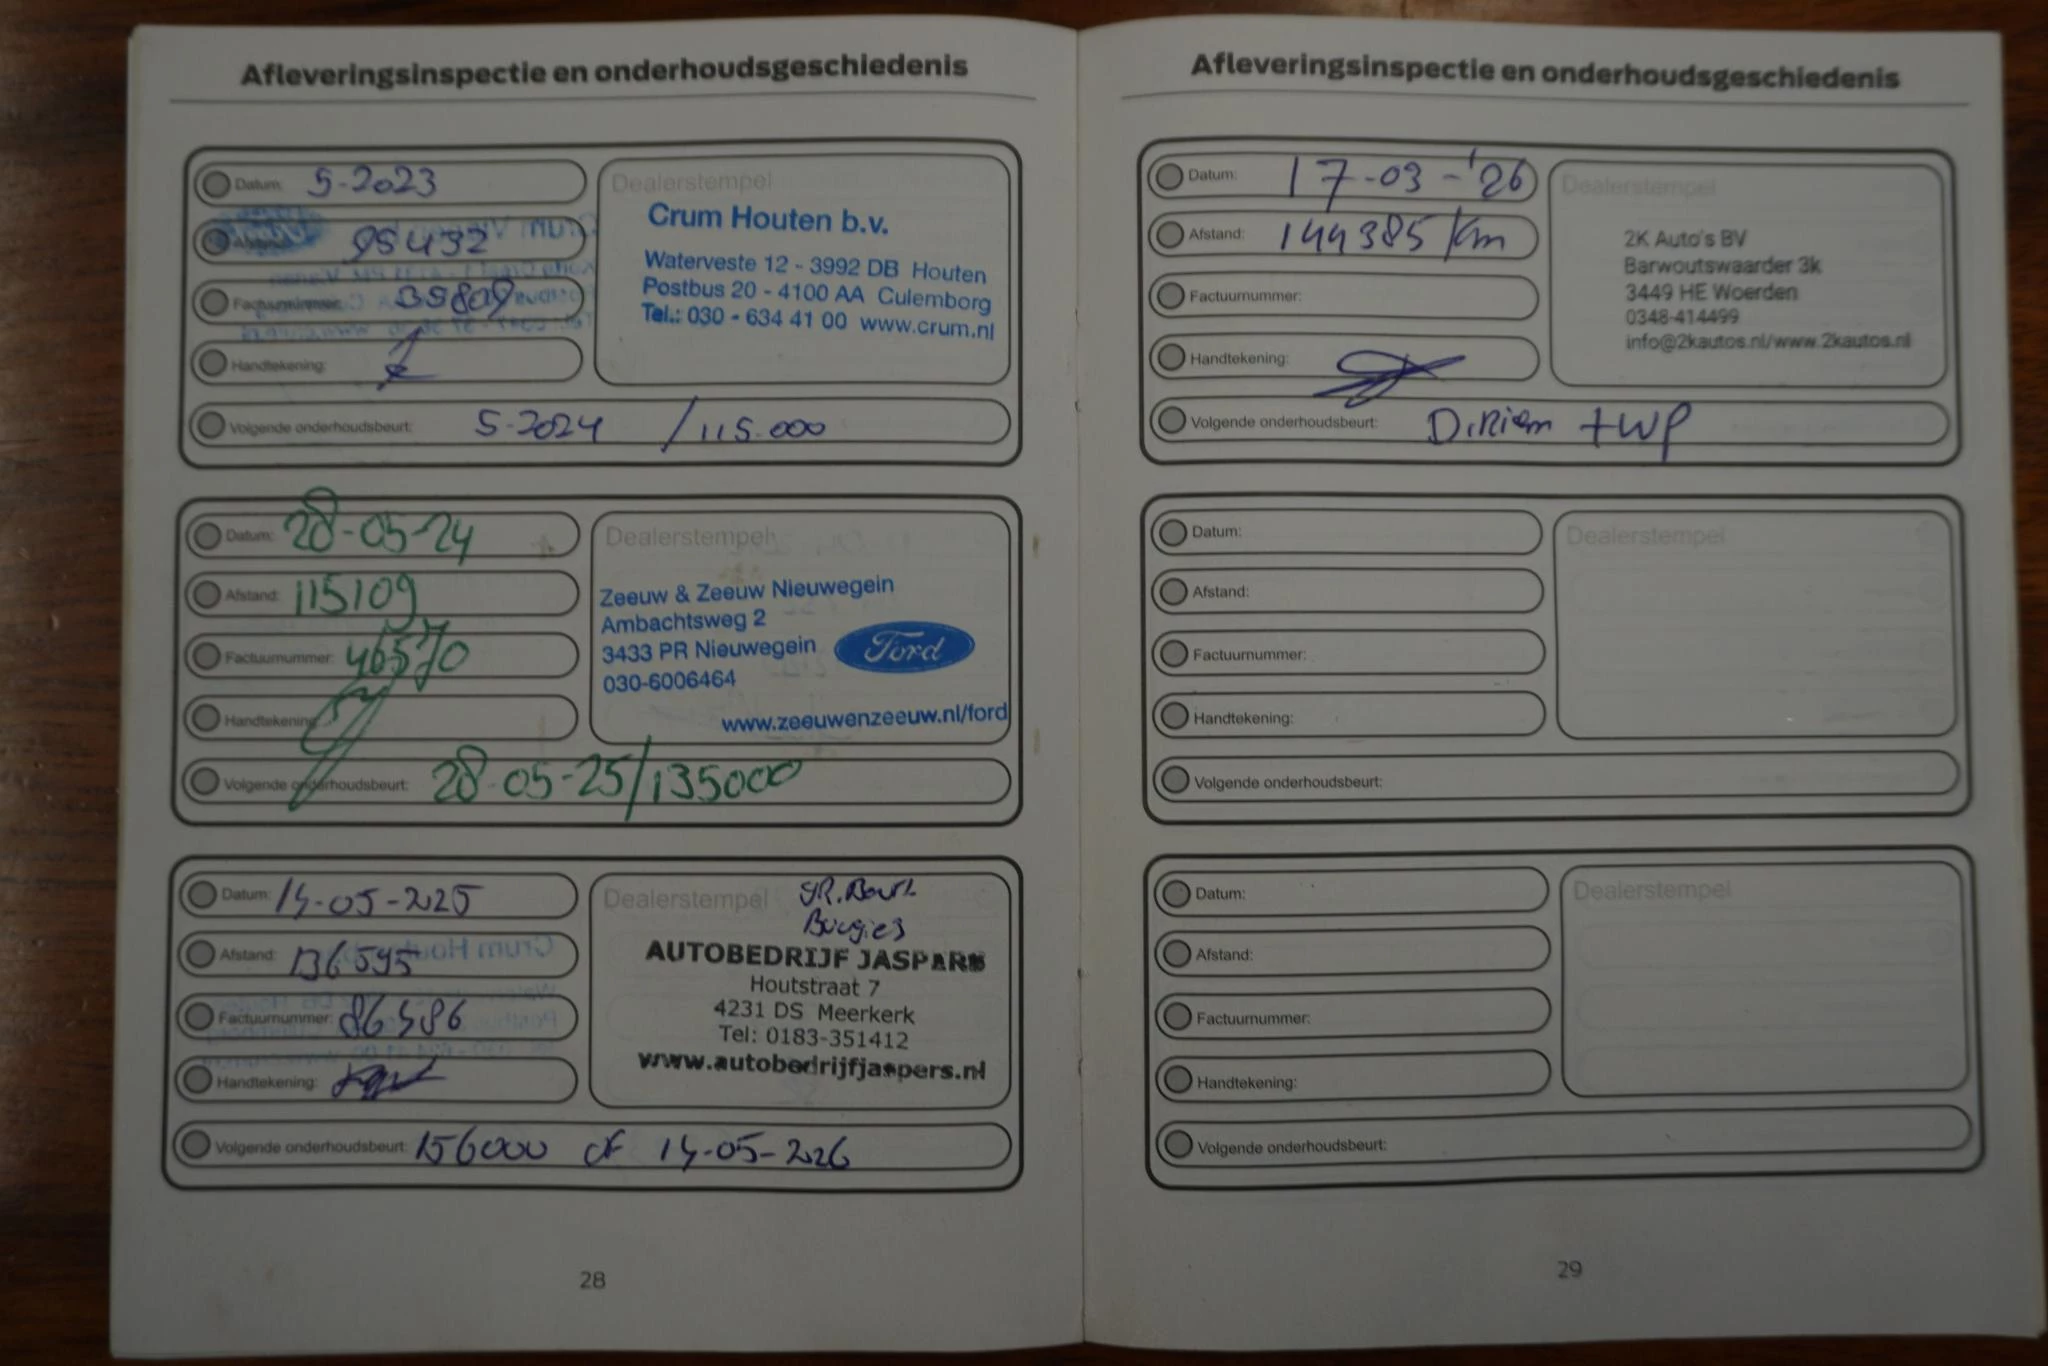 Afleveringsinspectie en onderhoudsgeschiedenis
Datum: 5-2023
Afstand: 95432
Factuurnummer: 35809
Handtekening:
Volgende onderhoudsbeurt: 5-2024 / 115.000
Dealerstempel
Crum Houten b.v.
Waterveste 12 - 3992 DB Houten
Postbus 20 - 4100 AA Culemborg
Tel.: 030 - 634 41 00 www.crum.nl
Datum: 28-05-24
Afstand: 115109
Factuurnummer: 46570
Handtekening:
Volgende onderhoudsbeurt: 28-05-25/135000
Dealerstempel
Zeeuw & Zeeuw Nieuwegein
Ambachtsweg 2
3433 PR Nieuwegein
030-6006464
Ford
www.zeeuwenzeeuw.nl/ford
Datum: 14-05-2025
Afstand: 136595
Factuurnummer: 86586
Handtekening:
Volgende onderhoudsbeurt: 156000 of 14-05-2026
Dealerstempel
Bougies
AUTOBEDRIJF JASPARS
Houtstraat 7
4231 DS Meerkerk
Tel: 0183-351412
www.autobedrijfjaspers.nl
28
Afleveringsinspectie en onderhoudsgeschiedenis
Datum: 17-03-'26
Afstand: 144385 km
Factuurnummer:
Handtekening:
Volgende onderhoudsbeurt: D.Riem + WP
Dealerstempel
2K Auto's BV
Barwoutswaarder 3k
3449 HE Woerden
0348-414499
info@2kautos.nl/www.2kautos.nl
Datum:
Afstand:
Factuurnummer:
Handtekening:
Volgende onderhoudsbeurt:
Dealerstempel
Datum:
Afstand:
Factuurnummer:
Handtekening:
Volgende onderhoudsbeurt:
Dealerstempel
29